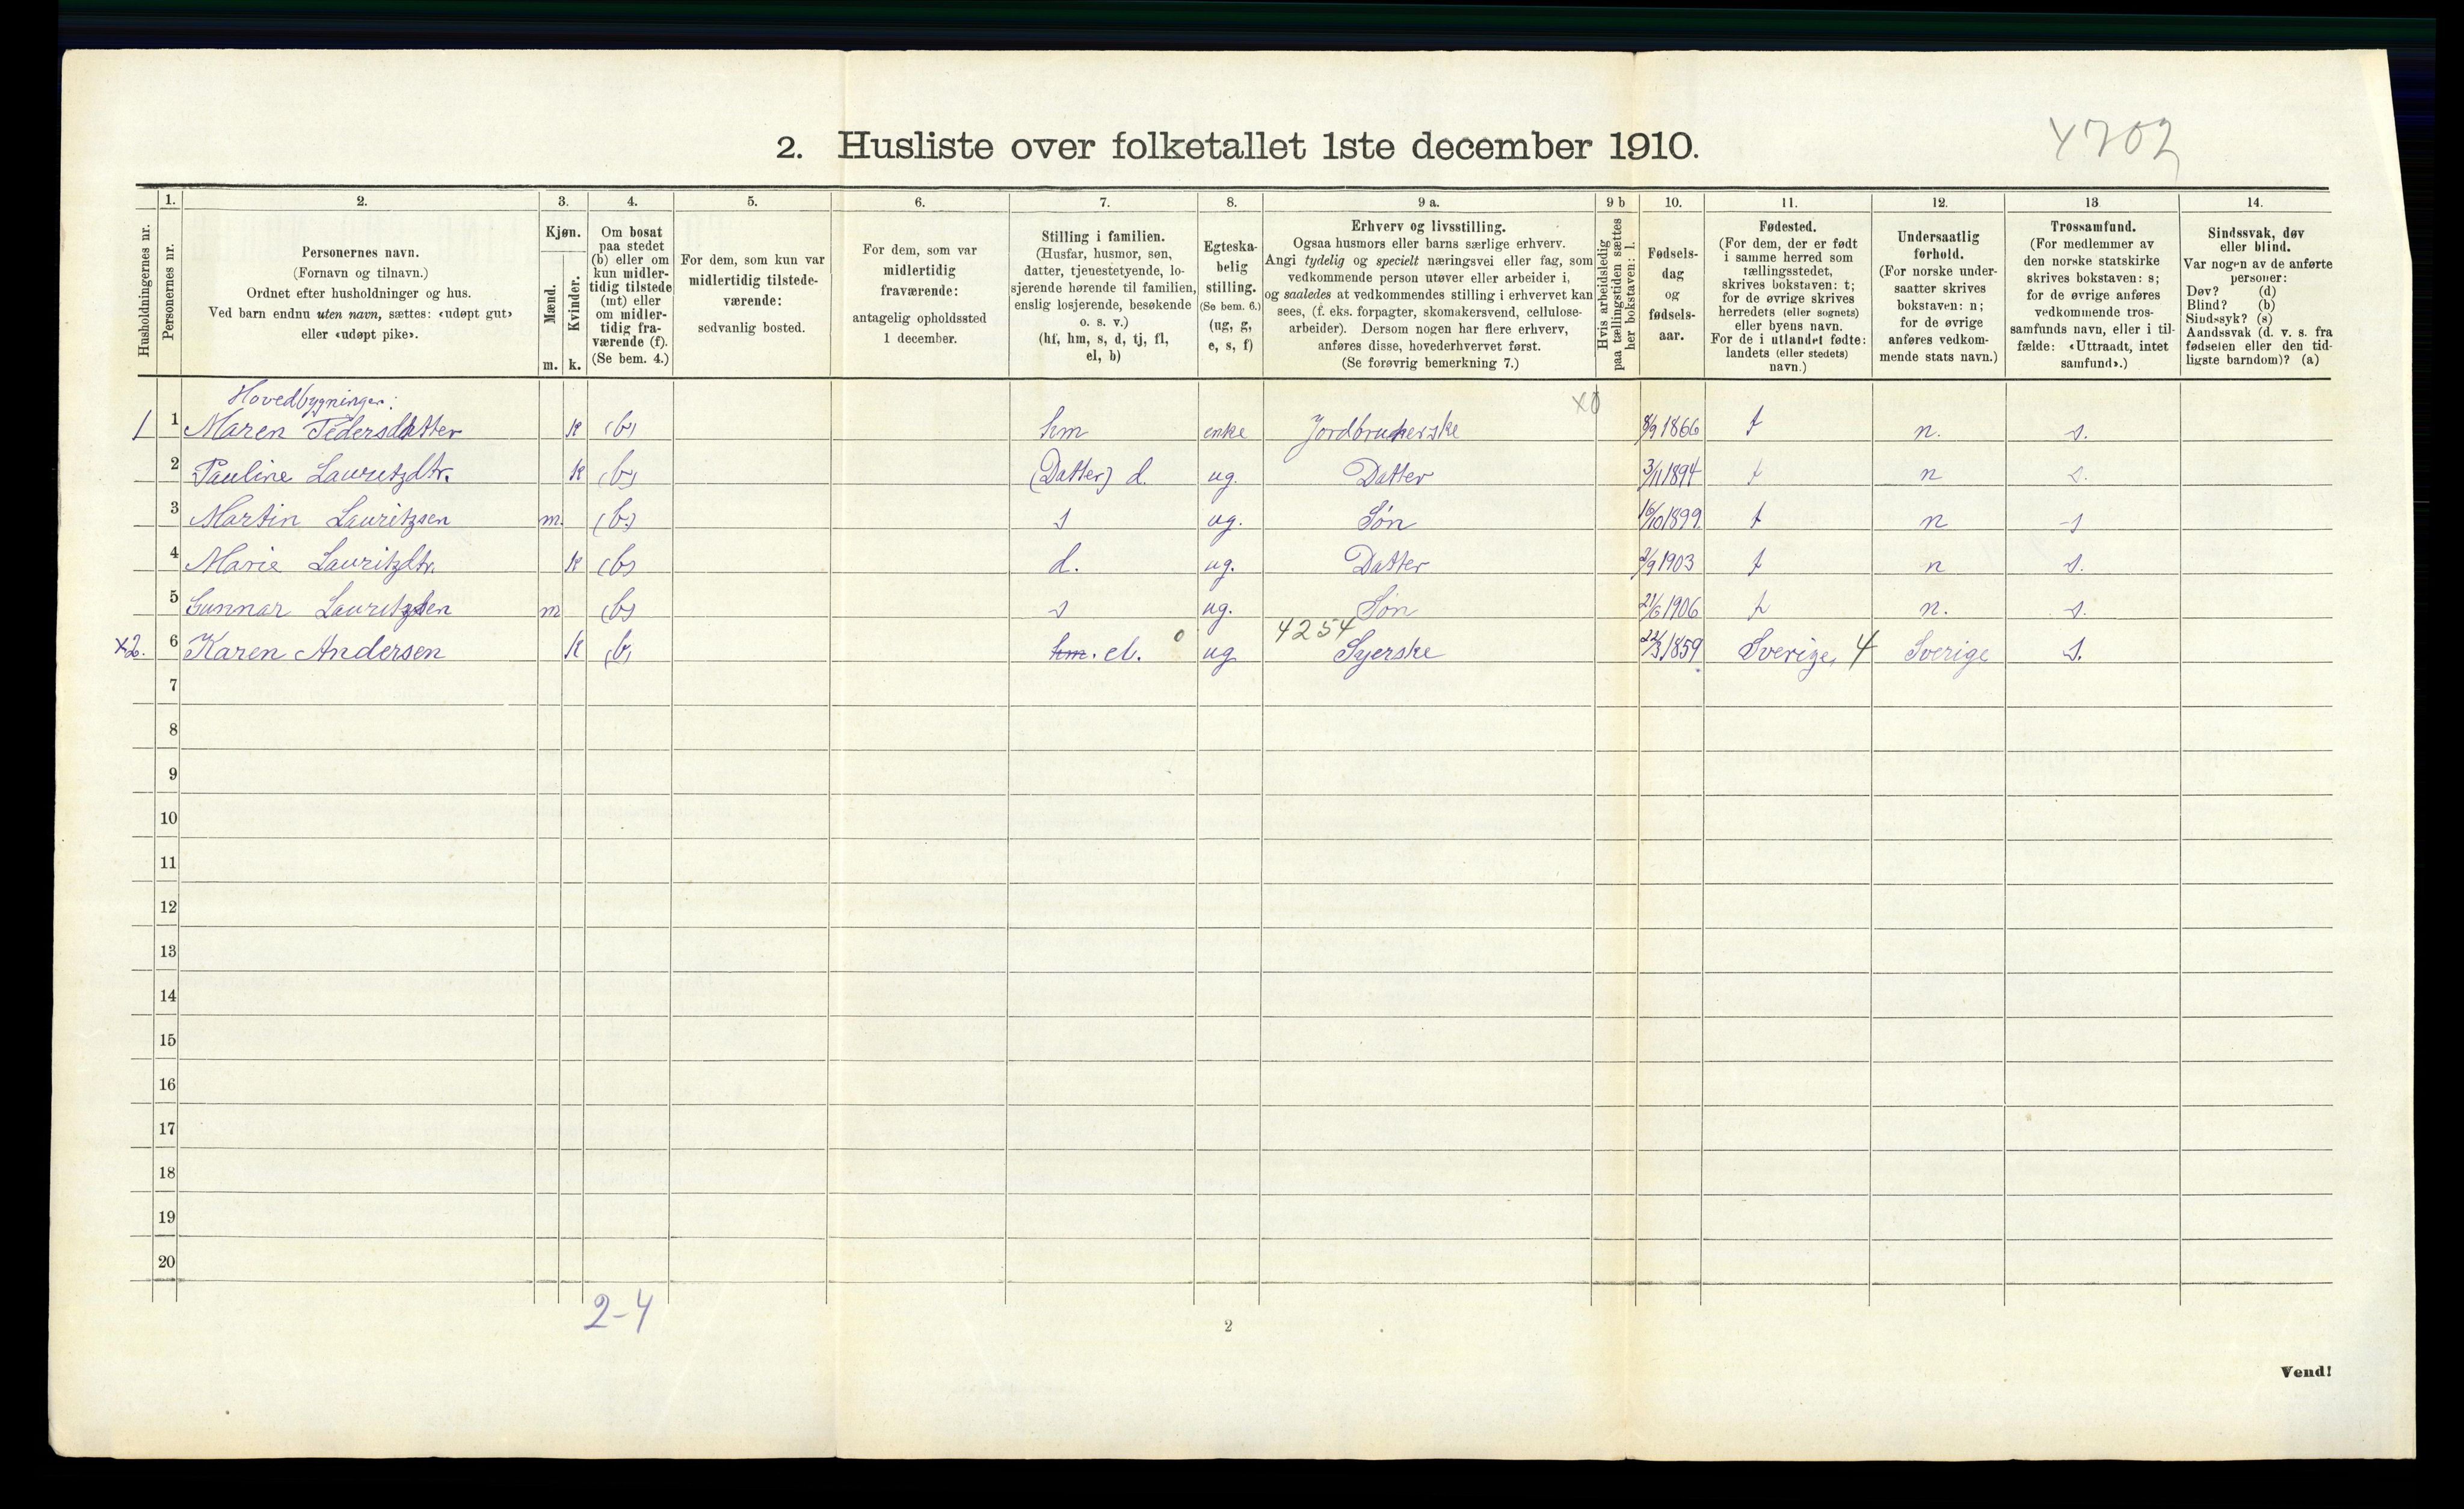 4702
2. Husliste over folketallet 1ste december 1910.
Husholdningernes nr.
1.
Personernes nr.
2.
Personernes navn.
(Fornavn og tilnavn.)
Ordnet efter husholdninger og hus.
Ved barn endnu uten navn, sættes: «udøpt gut»
eller «udøpt pike».
3.
Kjøn.
Mænd.
Kvinder.
m. k.
4.
Om bosat
paa stedet
(b) eller om
kun midler-
tidig tilstede
(mt) eller
om midler-
tidig fra-
værende (f).
(Se bem. 4.)
5.
For dem, som kun var
midlertidig tilstede-
værende:
sedvanlig bosted.
6.
For dem, som var
midlertidig
fraværende:
antagelig opholdssted
1 december.
7.
Stilling i familien.
(Husfar, husmor, søn,
datter, tjenestetyende, lo-
sjerende hørende til familien,
enslig losjerende, besøkende
o. s. v.)
(hf, hm, s, d, tj, fl,
el, b)
8.
Egteska-
belig
stilling.
(Se bem. 6.)
(ug, g,
e, s, f)
9 a.
Erhverv og livsstilling.
Ogsaa husmors eller barns særlige erhverv.
Angi tydelig og specielt næringsvei eller fag, som
vedkommende person utøver eller arbeider i,
og saaledes at vedkommendes stilling i erhvervet kan
sees, (f. eks. forpagter, skomakersvend, cellulose-
arbeider). Dersom nogen har flere erhverv,
anføres disse, hovederhvervet først.
(Se forøvrig bemerkning 7.)
9 b
Hvis arbeidsledig
paa tællingstiden sættes
her bokstaven: l.
10.
Fødsels-
dag
og
fødsels-
aar.
11.
Fødested.
(For dem, der er født
i samme herred som
tællingsstedet,
skrives bokstaven: t;
for de øvrige skrives
herredets (eller sognets)
eller byens navn.
For de i utlandet fødte:
landets (eller stedets)
navn.)
12.
Undersaatlig
forhold.
(For norske under-
saatter skrives
bokstaven: n;
for de øvrige
anføres vedkom-
mende stats navn.)
13.
Trossamfund.
(For medlemmer av
den norske statskirke
skrives bokstaven: s;
for de øvrige anføres
vedkommende tros-
samfunds navn, eller i til-
fælde: «Uttraadt, intet
samfund».)
14.
Sindssvak, døv
eller blind.
Var nogen av de anførte
personer:
Døv? (d)
Blind? (b)
Sindssyk? (s)
Aandssvak (d. v. s. fra
fødselen eller den tid-
ligste barndom)? (a)
Hovedbygningen:
x0
1 1 Maren Pedersdatter k (b) hm enke Jordbrukerske 8/9 1866 t n. s.
2 Pauline Lauritzdtr. k (b) (Datter) d. ug. Datter 3/11 1894 t n s.
3 Martin Lauritzsen m. (b.) s ug. Søn 16/10 1899. t n s
4 Marie Lauritzdtr. k (b) d. ug. Datter 2/9 1903 t n s.
5 Gunnar Lauritzsen m (b) s ug. Søn 21/6 1906 t n. s.
4254
x2. 6 Karen Andersen k (b) hm. el. 0 ug Syerske 22/3 1859 Sverige, 4 Sverige s.
7
8
9
10
11
12
13
14
15
16
17
18
19
20
2-4
2
Vend!